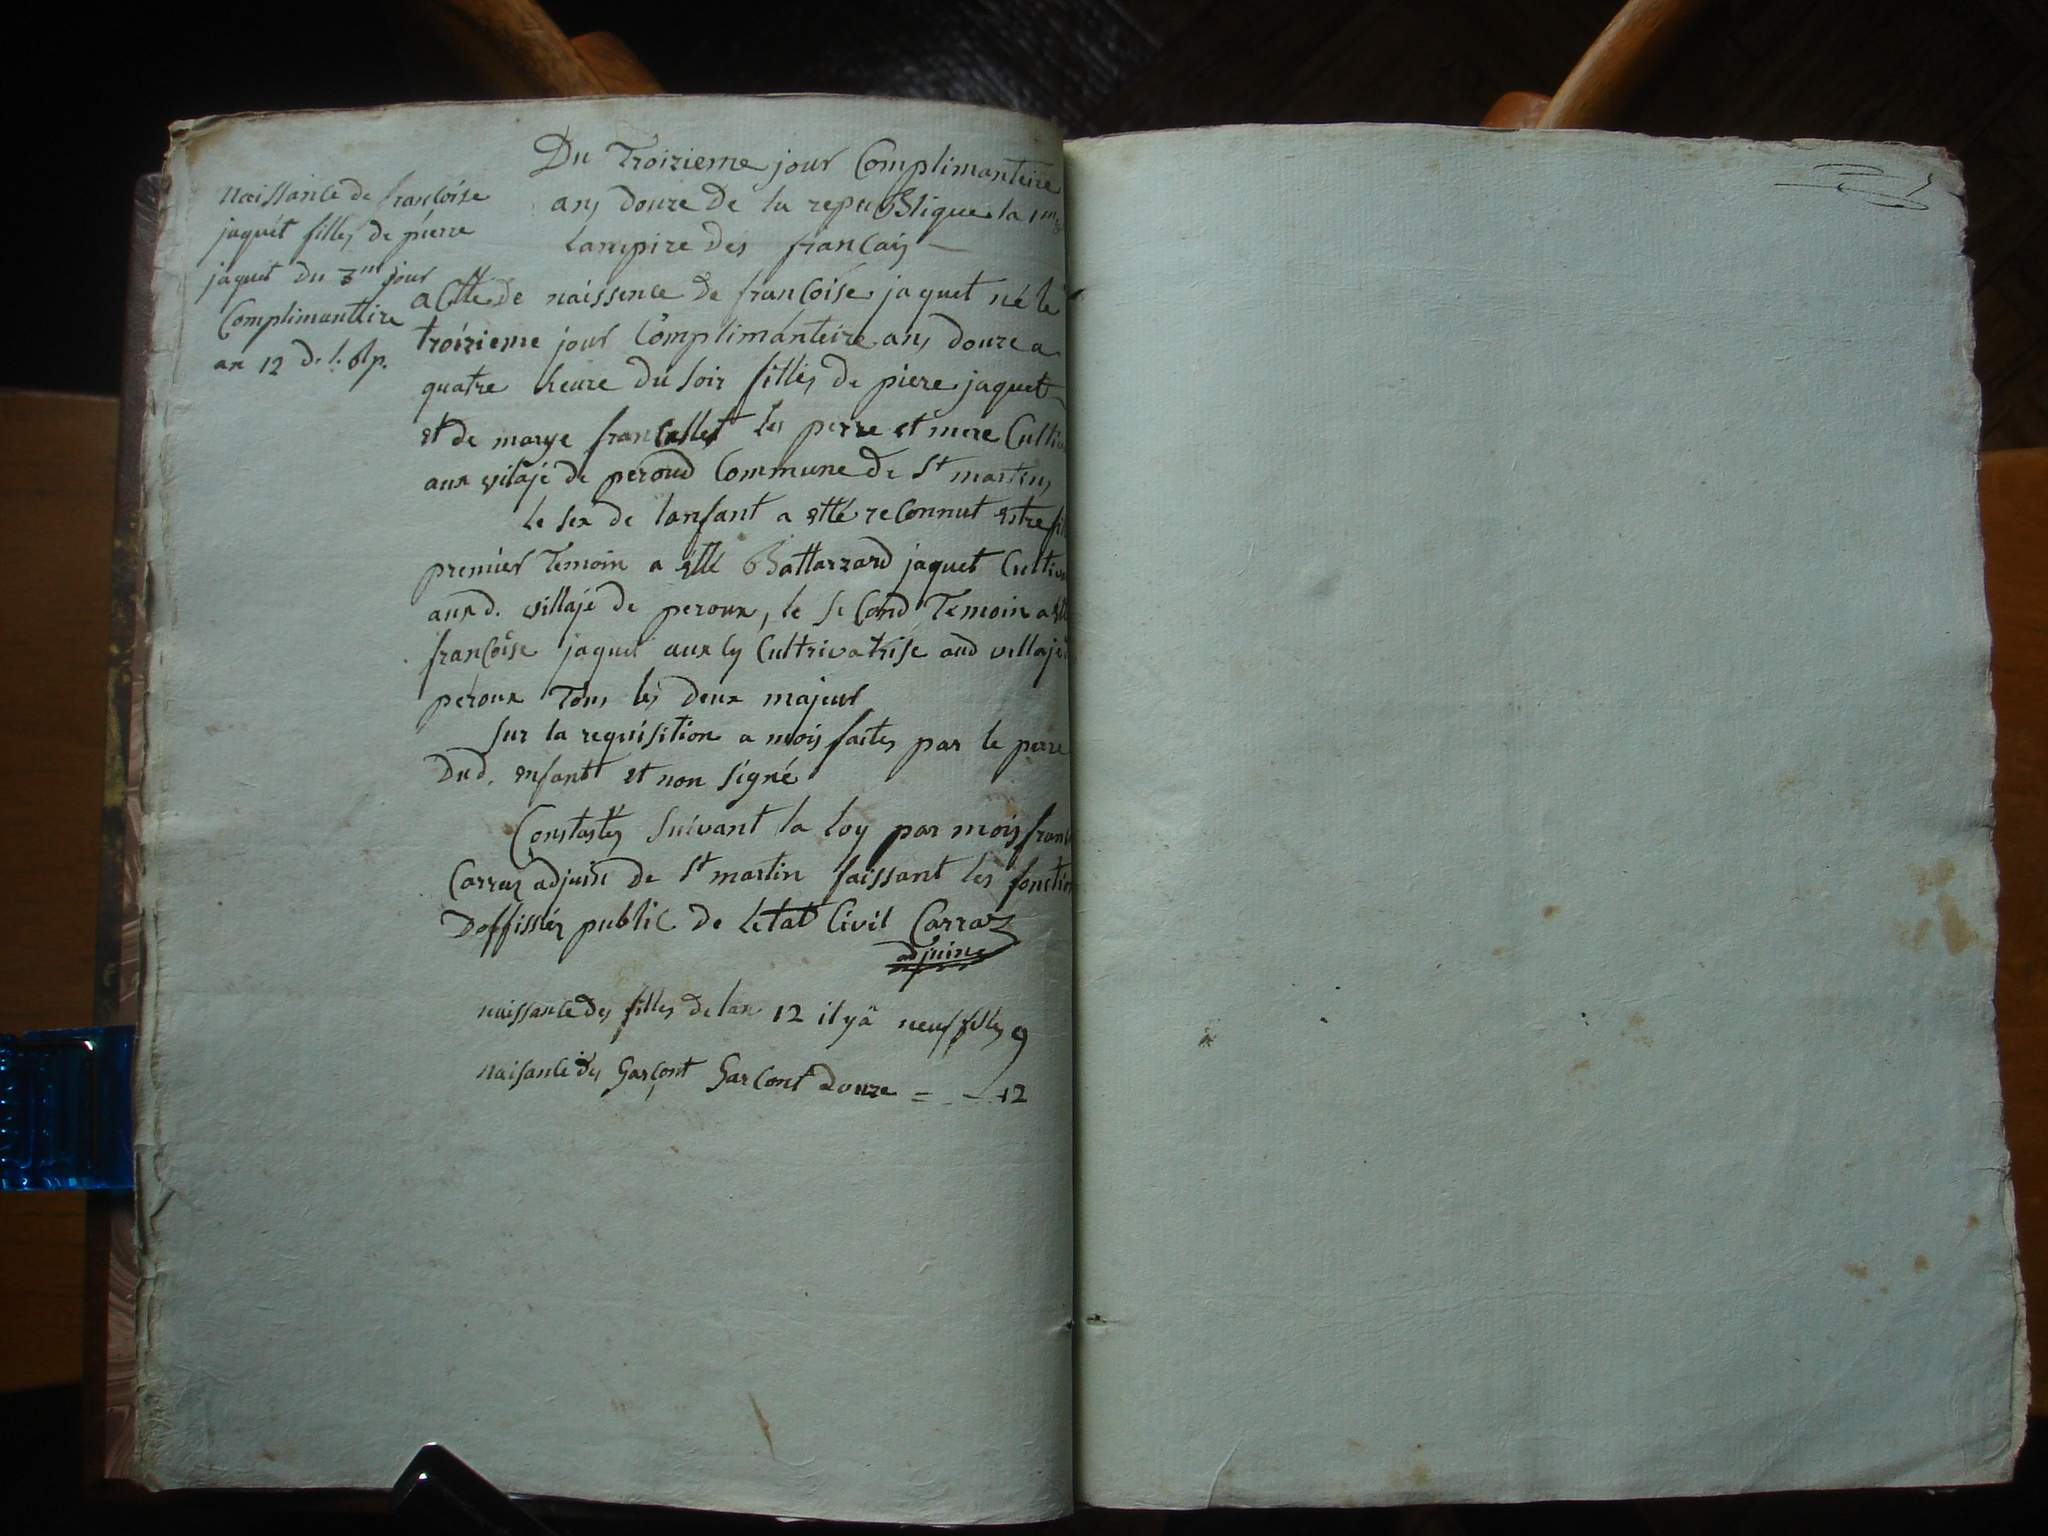 naissance de francoise
jaquet filles de pierre
jaquet du 3me jour
Complimanttire
an 12 de l. Rp.
Du Troizieme jour Complimanteire
ans douze de la republique la 1me
lampire des francais
actte de naissence de francoise jaquet né le
troizieme jour Complimanteire ans douze a
quatre heure du soir filles de piere jaquet
et de marye francallet les perre et mere Cultiv
aux vilaje de peroud Commune de St martin
le sex de lanfant a etté reconnut estre fil
premier temoin a etté Battarzard jaquet Cultiv
aux d. villaje de peroux, le second Temoin a ett
francoise jaquet aux sy Cultrivatrise aud villaje d
peroux Tous les deux majeur
sur la requisition a mois faites par le perre
Dud. enfant et non signé
Constastes suivant la loy par mois franc
Carraz adjuint de St martin faissant les fonction
Doffissier public de letat Civil Carraz
adjuint
naissance des filles de lan 12 il y a neuf filles 9
naisance des Garçont Garcont douze = - - 12